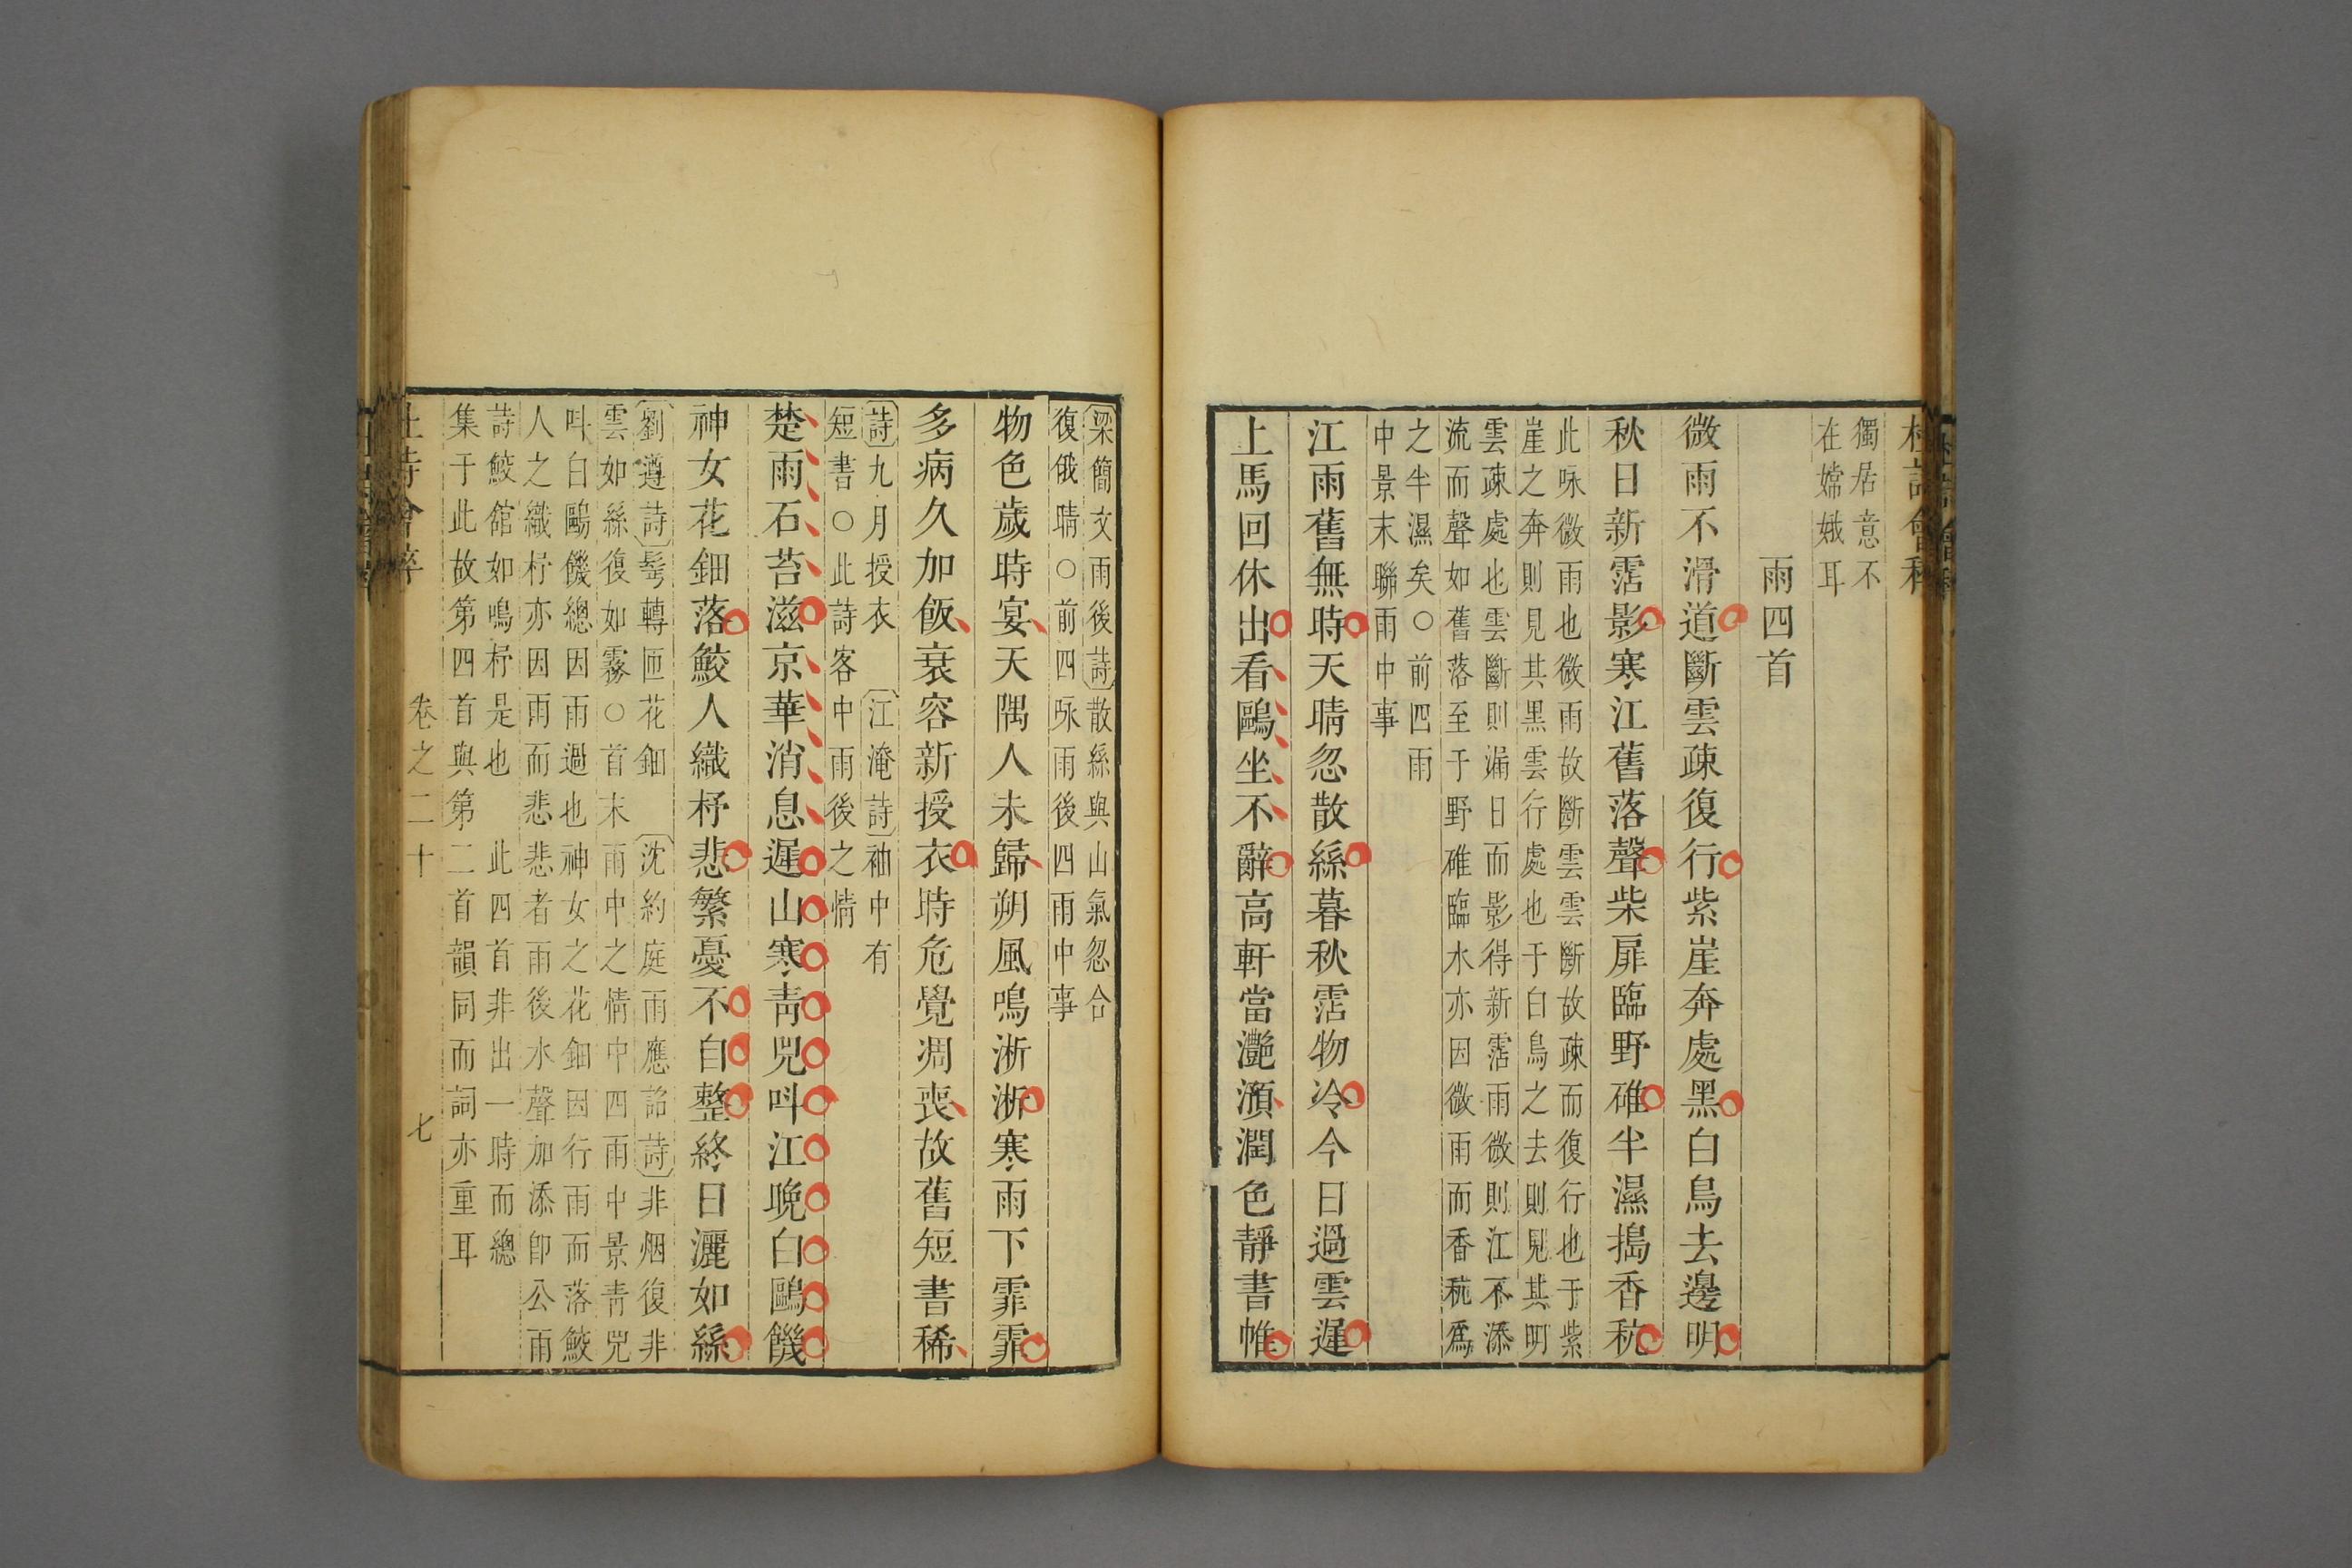 獨居意不
在嫦娥耳
雨四首
微雨不滑道斷雲疎復行紫崖奔處黑白鳥去邊明
秋日新霑影寒江舊落聲柴扉臨野碓半濕搗香秔
此咏微雨也微雨故斷雲雲斷故疎而復行也于紫
崖之奔則見其黑雲行處也于白鳥之去則見其明
雲疎處也雲斷則漏日而影得新霑雨微則江不添
流而聲如舊落至于野碓臨水亦因微雨而香秔爲
之半濕矣○前四雨
中景末聯雨中事
江雨舊無時天晴忽散絲暮秋霑物冷今日過雲遲
上馬回休出看鷗坐不辭高軒當灩澦潤色靜書帷
梁簡文雨後詩散絲與山氣忽合
復俄晴○前四咏雨後四雨中事
物色歲時宴天隅人未歸朔風鳴淅淅寒雨下霏霏
多病久加飯衰容新授衣時危覺凋喪故舊短書稀
詩九月授衣 江淹詩袖中有
短書○此詩客中雨後之情
楚雨石苔滋京華消息遲山寒靑兕呌江晚白鷗饑
神女花鈿落鮫人織杼悲繁憂不自整終日灑如絲
劉遵詩髩轉匝花鈿 沈約庭雨應詔詩非烟復非
雲如絲復如霧○首末雨中之情中四雨中景靑兕
呌白鷗饑總因雨過也神女之花鈿因行雨而落鮫
人之織杼亦因雨而悲悲者雨後水聲加添卽公雨
詩鮫館如鳴杼是也 此四首非出一時而總
集于此故第四首與第二首韻同而詞亦重耳
卷之二十 七